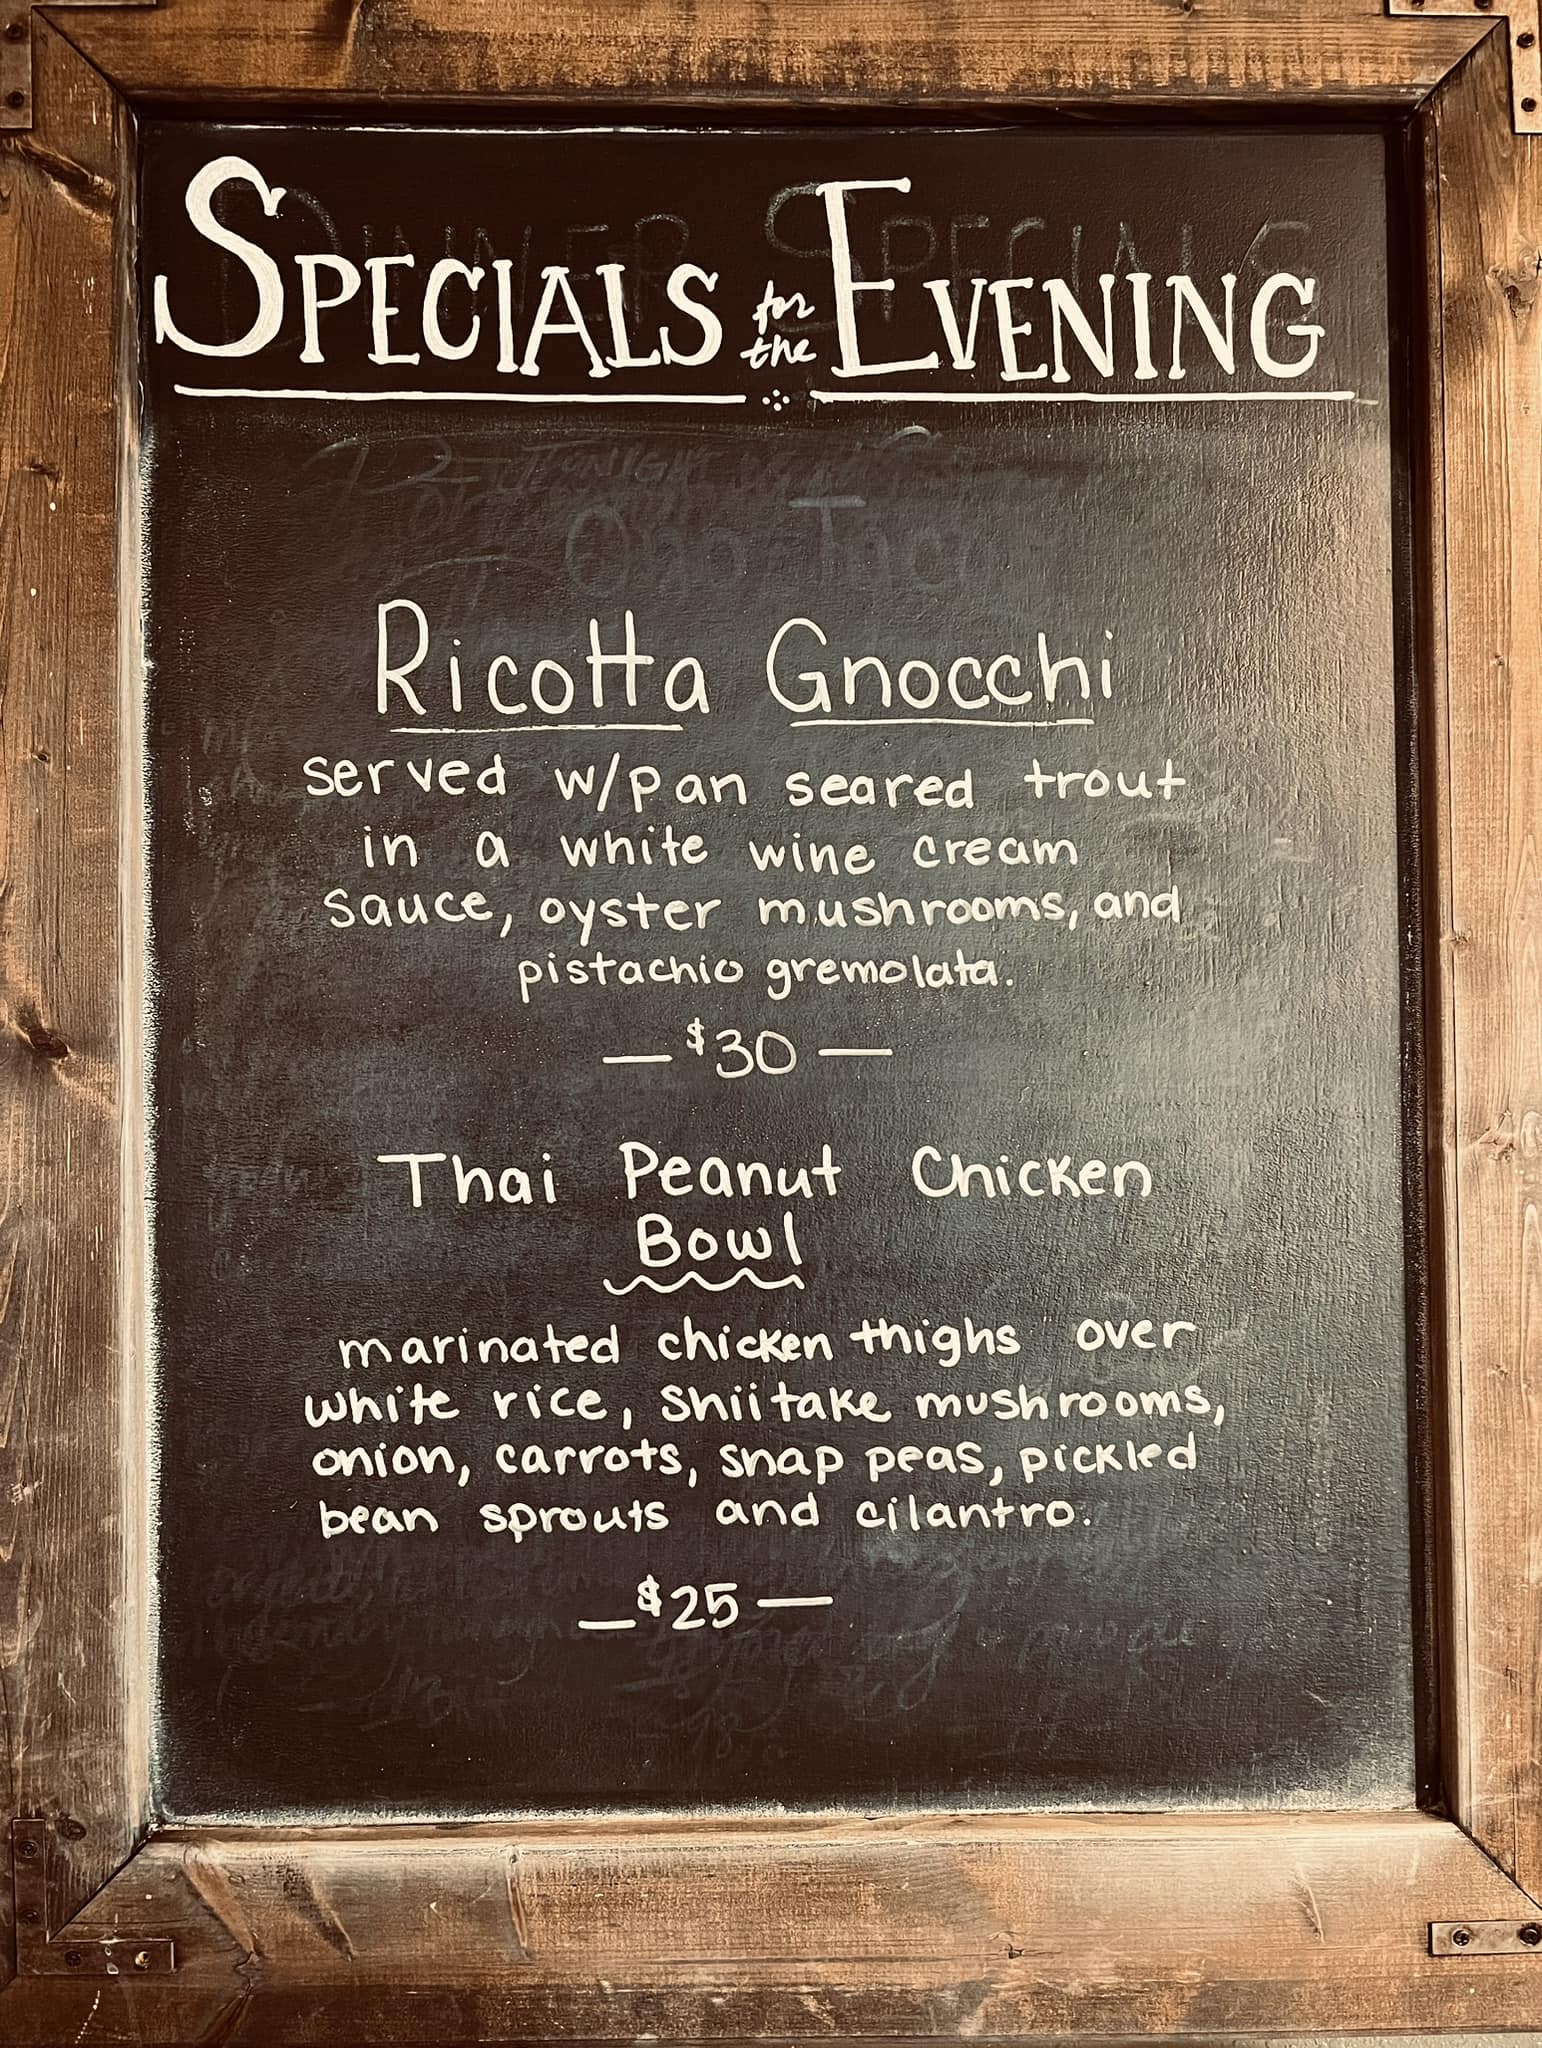 DINNER SPECIALS
SPECIALS for the EVENING
Ono Taco
Ricotta Gnocchi
served w/pan seared trout
in a white wine cream
sauce, oyster mushrooms, and
pistachio gremolata.
— $30 —
Thai Peanut Chicken
Bowl
marinated chicken thighs over
white rice, shiitake mushrooms,
onion, carrots, snap peas, pickled
bean sprouts and cilantro.
— $25 —